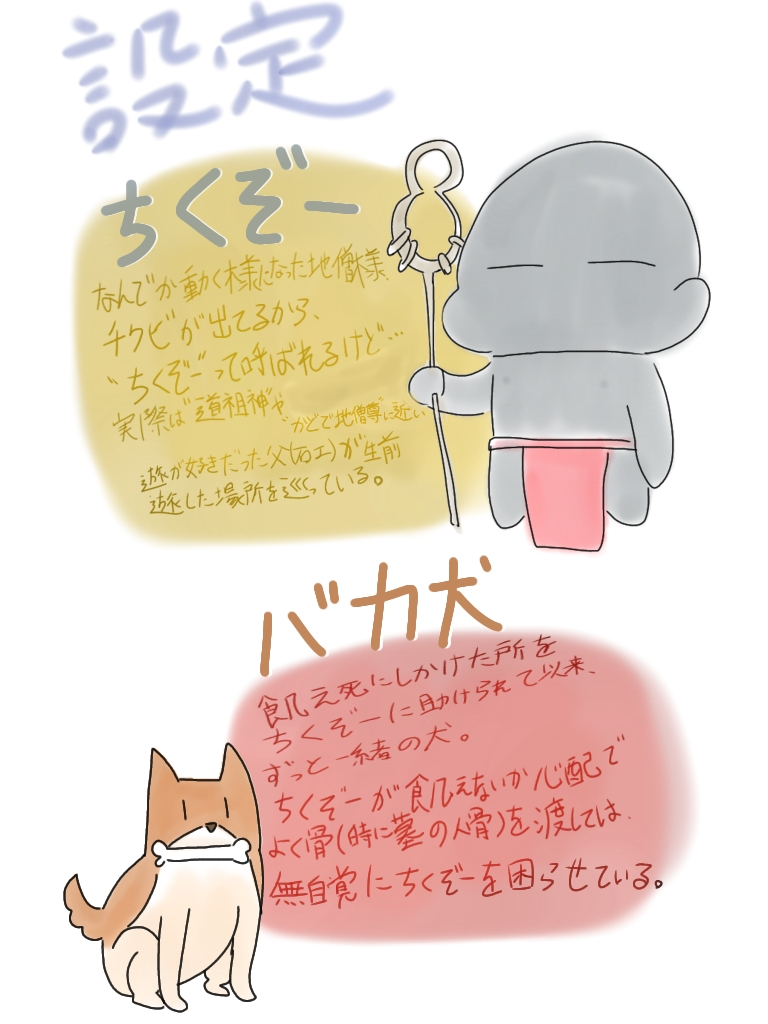 設定
ちくぞー
なんでか動く様になった地僧様、
チクビが出てるから、
"ちくぞー"って呼ばれるけど…
実際は"道祖神"や
"かどで地僧尊"に近い
遊が好きだった父(石工)が生前
遊した場所を巡っている。
バカ犬
飢え死にしかけた所を
ちくぞーに助けられて以来、
ずっと一緒の犬。
ちくぞーが飢えないか心配で
よく骨(時に墓の人骨)を渡しては、
無自覚にちくぞーを困らせている。